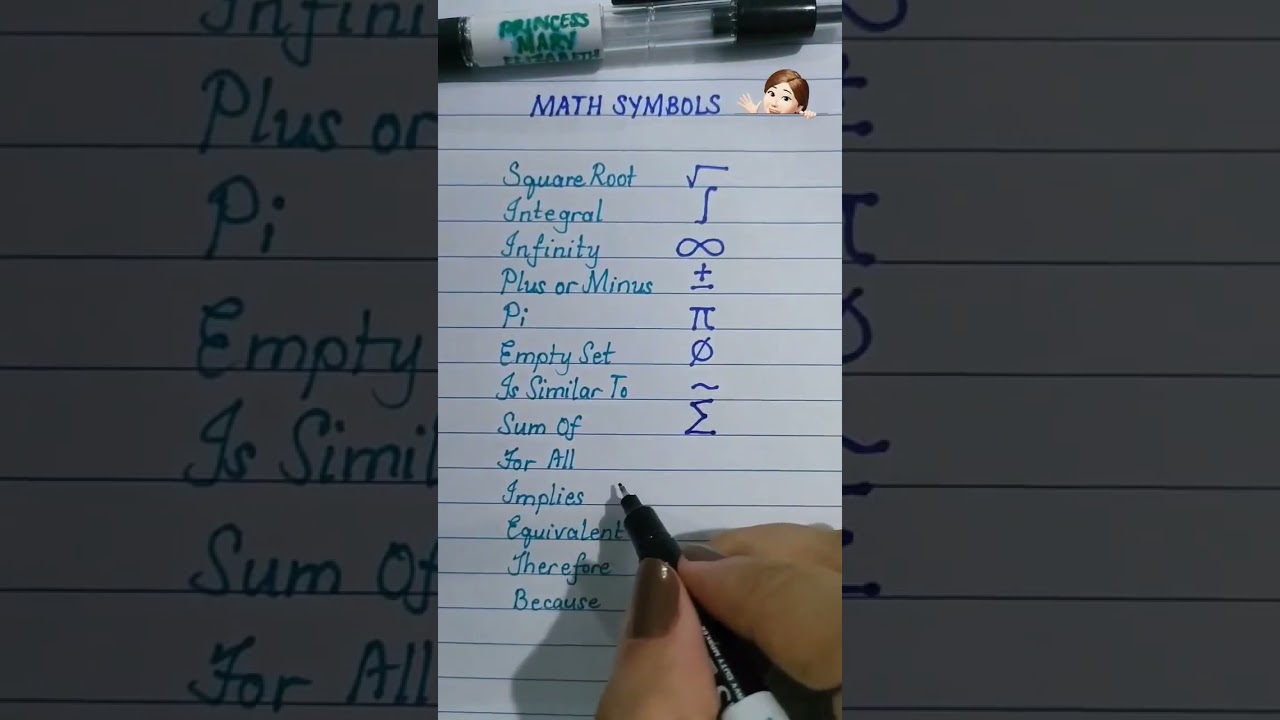 PRINCESS
MARY
ELIZABETH
MATH SYMBOLS
Square Root √
Integral ∫
Infinity ∞
Plus or Minus ±
Pi π
Empty Set Ø
Is Similar To ~
Sum Of Σ
For All
Implies
Equivalent
Therefore
Because